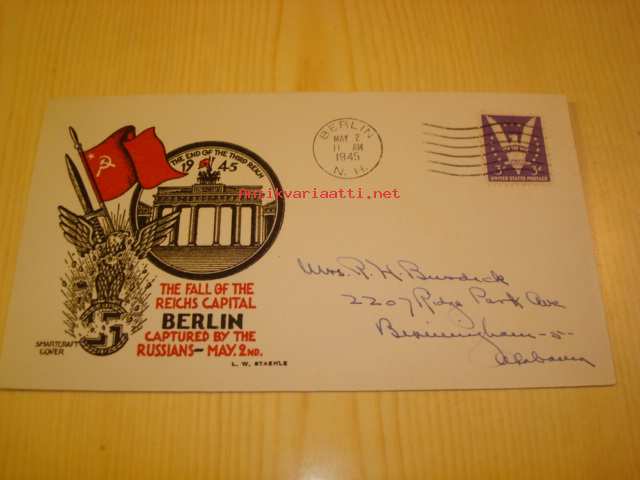 THE END OF THE THIRD REICH
1945
THE FALL OF THE
REICHS CAPITAL
BERLIN
CAPTURED BY THE
RUSSIANS – MAY. 2ND.
SMARTCRAFT
COVER
L. W. STAEHLE
BERLIN
MAY 2
11 AM
1945
N. H.
3¢ 3¢
UNITED STATES POSTAGE
antikvariaatti.net
Mrs. R. H. Burdick
2207 Ridge Park Ave
Birmingham - 5 -
Alabama